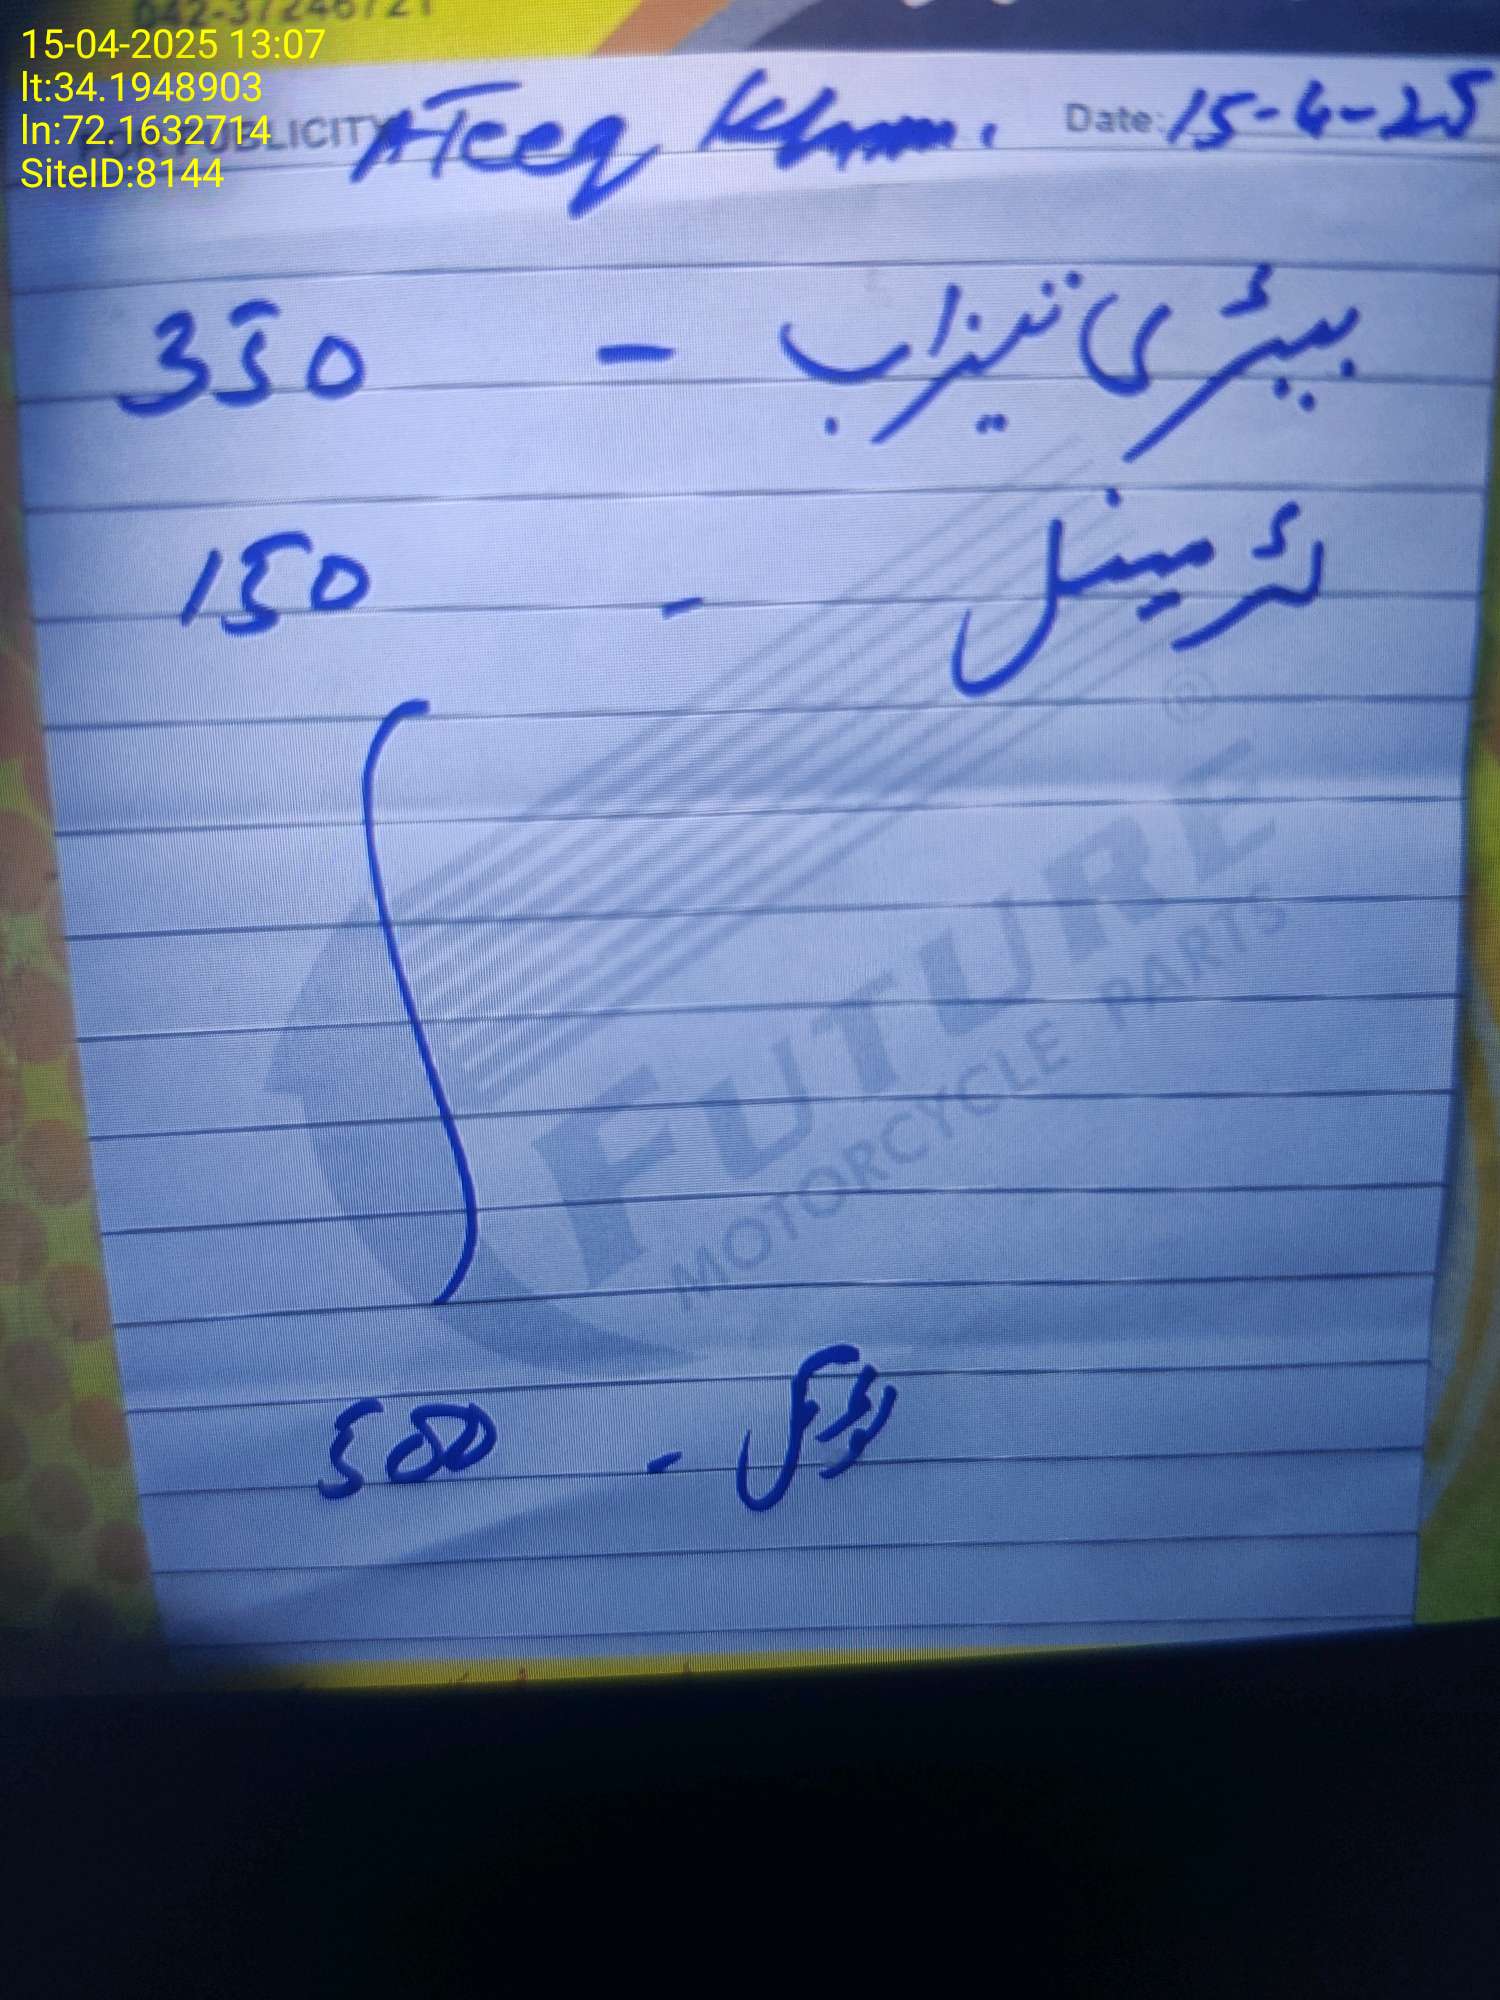 042-37248721
15-04-2025 13:07
lt:34.1948903
ln:72.1632714
SiteID:8144
PUBLICITY
Ateeq Khan.
Date: 15-4-25
بیٹری تیزاب - 350
ٹرمینل - 150
FUTURE ®
MOTORCYCLE PARTS
ٹوٹل - 500